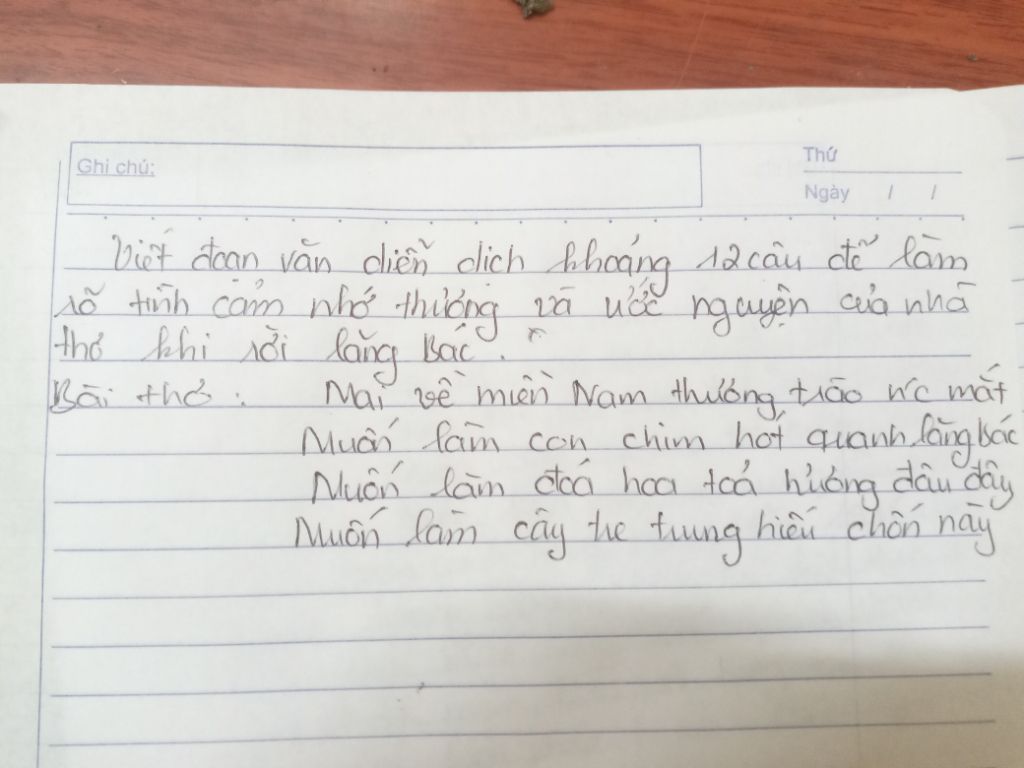 Ghi chú:
Thứ
Ngày / /
Viết đoạn văn diễn dịch khoảng 12 câu để làm
rõ tình cảm nhớ thương và ước nguyện của nhà
thơ khi rời lăng Bác.
Bài thơ: Mai về miền Nam thương trào nc mắt
Muốn làm con chim hót quanh lăng Bác
Muốn làm đoá hoa toả hương đâu đây
Muốn làm cây tre trung hiếu chốn này